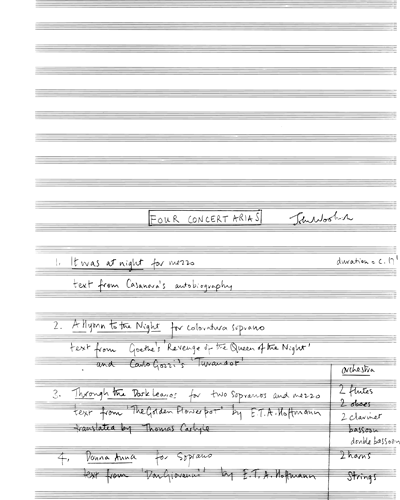 FOUR CONCERT ARIAS
1. It was at night for mezzo
duration = c. 17'
text from Casanova's autobiography
2. A Hymn to the Night for coloratura soprano
text from Goethe's 'Revenge of the Queen of the Night'
and Carlo Gozzi's 'Turandot'
3. Through the Dark Leaves for two Sopranos and mezzo
text from 'The Golden Flowerpot' by E.T.A. Hoffmann
translated by Thomas Carlyle
4. Donna Anna for Soprano
text from 'Don Giovanni' by E.T.A. Hoffmann
orchestra
2 flutes
2 oboes
2 clarinet
bassoon
double bassoon
2 horns
Strings